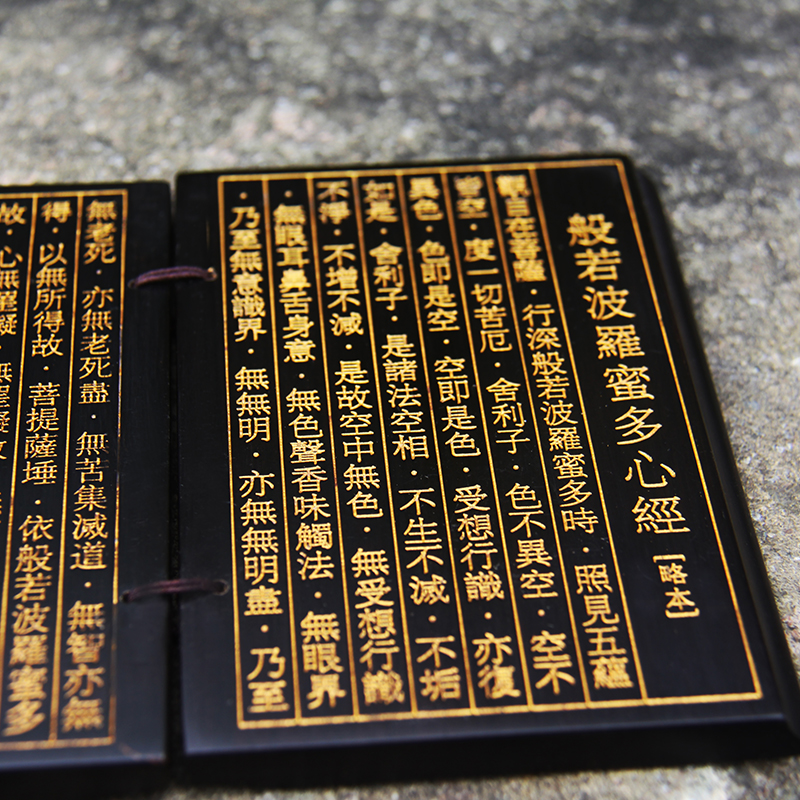 般若波羅蜜多心經【略本】
觀自在菩薩·行深般若波羅蜜多時·照見五蘊
皆空·度一切苦厄·舍利子·色不異空·空不
異色·色即是空·空即是色·受想行識·亦復
如是·舍利子·是諸法空相·不生不滅·不垢
不淨·不增不減·是故空中無色·無受想行識
·無眼耳鼻舌身意·無色聲香味觸法·無眼界
·乃至無意識界·無無明·亦無無明盡·乃至
無老死·亦無老死盡·無苦集滅道·無智亦無
得·以無所得故·菩提薩埵·依般若波羅蜜多
故·心無罣礙·無罣礙故